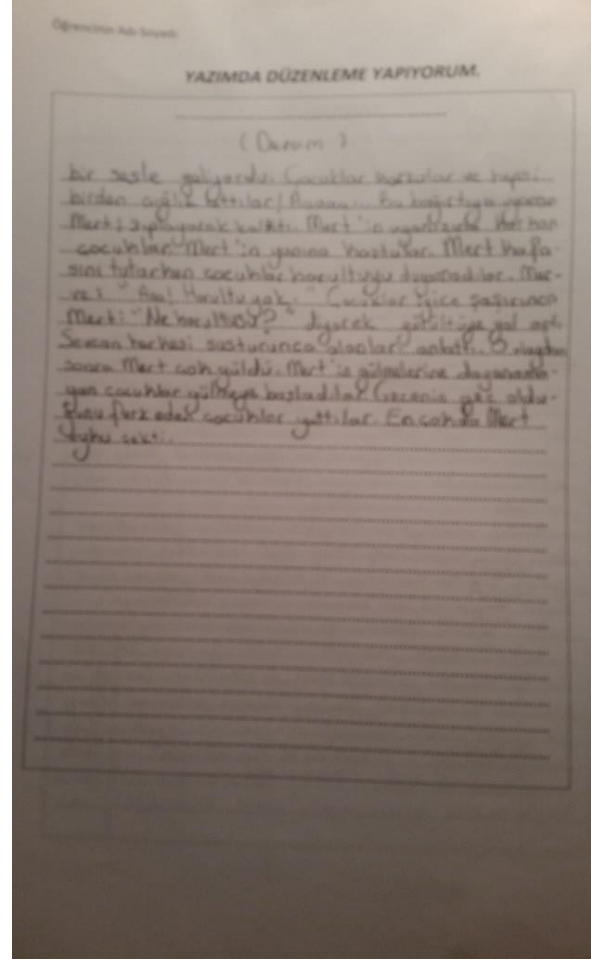 Öğrencinin Adı Soyadı
YAZIMDA DÜZENLEME YAPIYORUM.
( Devam )
bir sesle geliyordu. Çocuklar korktular ve hepsi
birden çığlık attılar! Aaaaa... Bu bağırtıya uyanan
Mert; zıplayarak kalktı. Mert'in
çocuklar Mert'in yanına koştular. Mert kafa-
sını tutarken çocuklar horultuyu duymadılar. Mer-
ve: " Aaa! Horultu yok. " Çocuklar iyice şaşırınca
Mert: "Ne horultusu?" diyerek gürültüye yol açtı.
herkesi susturunca olanları anlattı. O olaydan
sonra Mert çok güldü. Mert'in gülmelerine dayanama-
yan çocuklar gülmeye başladılar. Gecenin geç oldu-
ğunu fark eden çocuklar yattılar. En çok da Mert
uyku çekti.